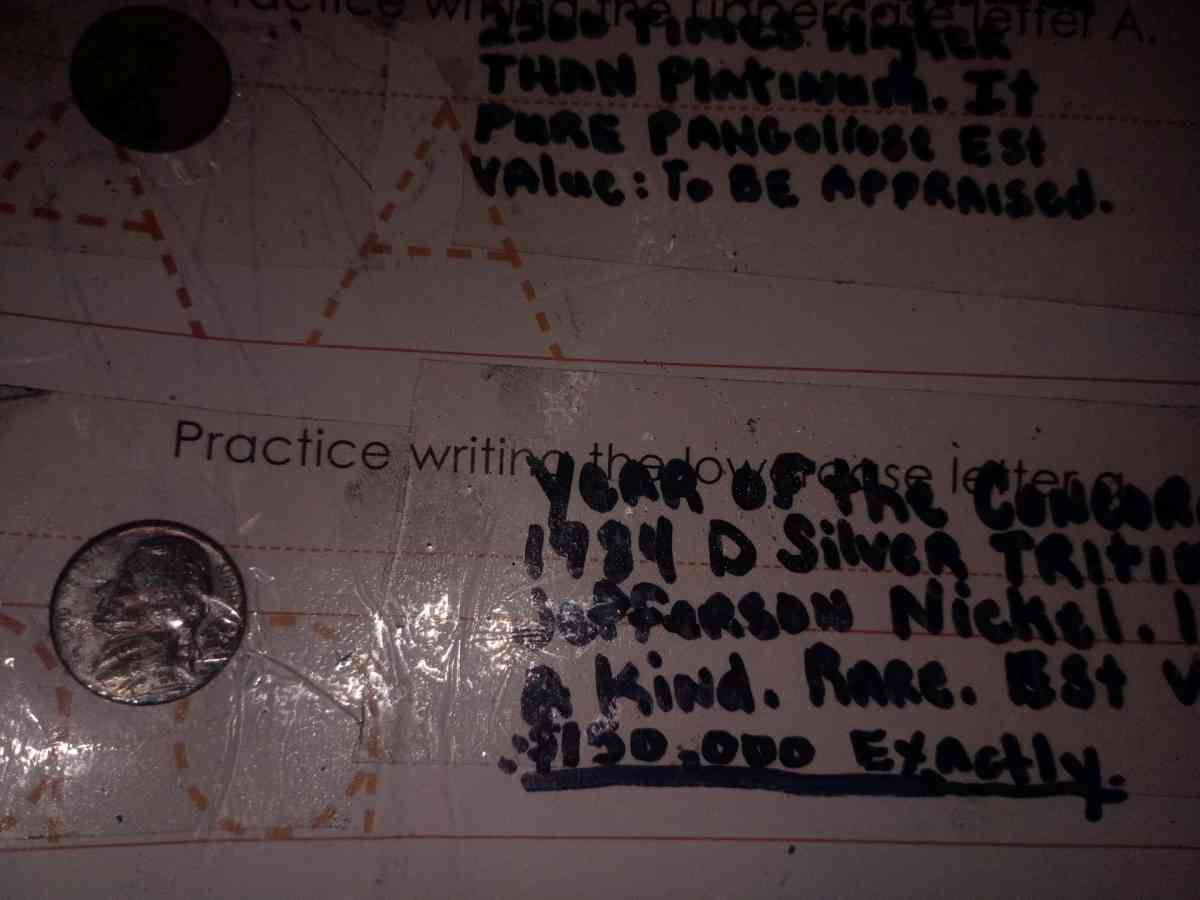 Practice writing the uppercase letter A.
2500 Times Higher
THAN Platinum. It
PURE PANGolliose Est
Value: To BE APPRAISED.
Practice writing the lowercase letter a
YEAR OF The
1984 D Silver
Jefferson Nickel.
A Kind. Rare. Est
$150,000 Exactly.